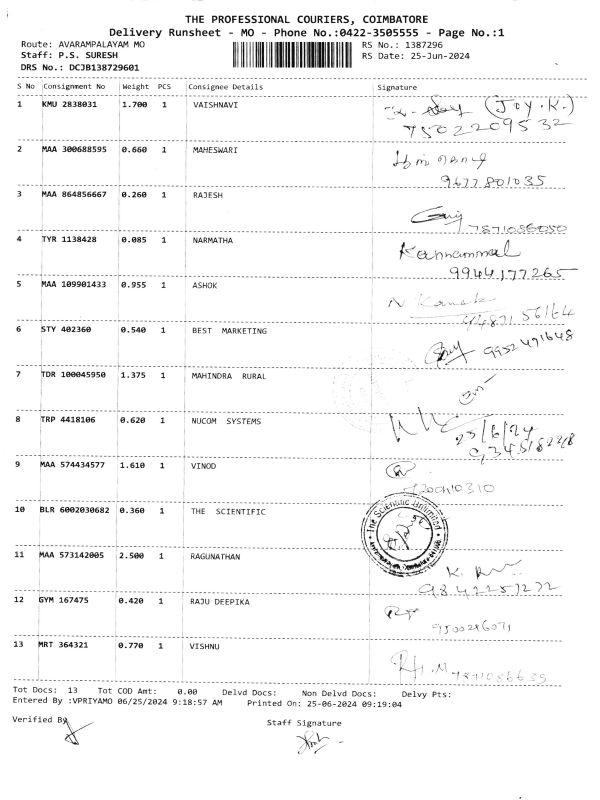 THE PROFESSIONAL COURIERS, COIMBATORE
Delivery Runsheet - MO - Phone No.:0422-3505555 - Page No.:1
Route: AVARAMPALAYAM MO RS No.: 1387296
Staff: P.S. SURESH RS Date: 25-Jun-2024
DRS No.: DCJB138729601
S No Consignment No Weight PCS Consignee Details Signature
1 KMU 2838031 1.700 1 VAISHNAVI (Joy.K.)
7502209532
2 MAA 300688595 0.660 1 MAHESWARI
9677801035
3 MAA 864856667 0.260 1 RAJESH
7871086050
4 TYR 1138428 0.085 1 NARMATHA Kannammal
9944177265
5 MAA 109901433 0.955 1 ASHOK
6 STY 402360 0.540 1 BEST MARKETING
9952491648
7 TDR 100045950 1.375 1 MAHINDRA RURAL
8 TRP 4418106 0.620 1 NUCOM SYSTEMS
25/6/24
9 MAA 574434577 1.610 1 VINOD
10 BLR 6002030682 0.360 1 THE SCIENTIFIC
The Scientific Unlimited
11 MAA 573142005 2.500 1 RAGUNATHAN
9842257272
12 GYM 167475 0.420 1 RAJU DEEPIKA
9500286071
13 MRT 364321 0.770 1 VISHNU
Tot Docs: 13 Tot COD Amt: 0.00 Delvd Docs: Non Delvd Docs: Delvy Pts:
Entered By :VPRIYAMO 06/25/2024 9:18:57 AM Printed On: 25-06-2024 09:19:04
Verified By
Staff Signature